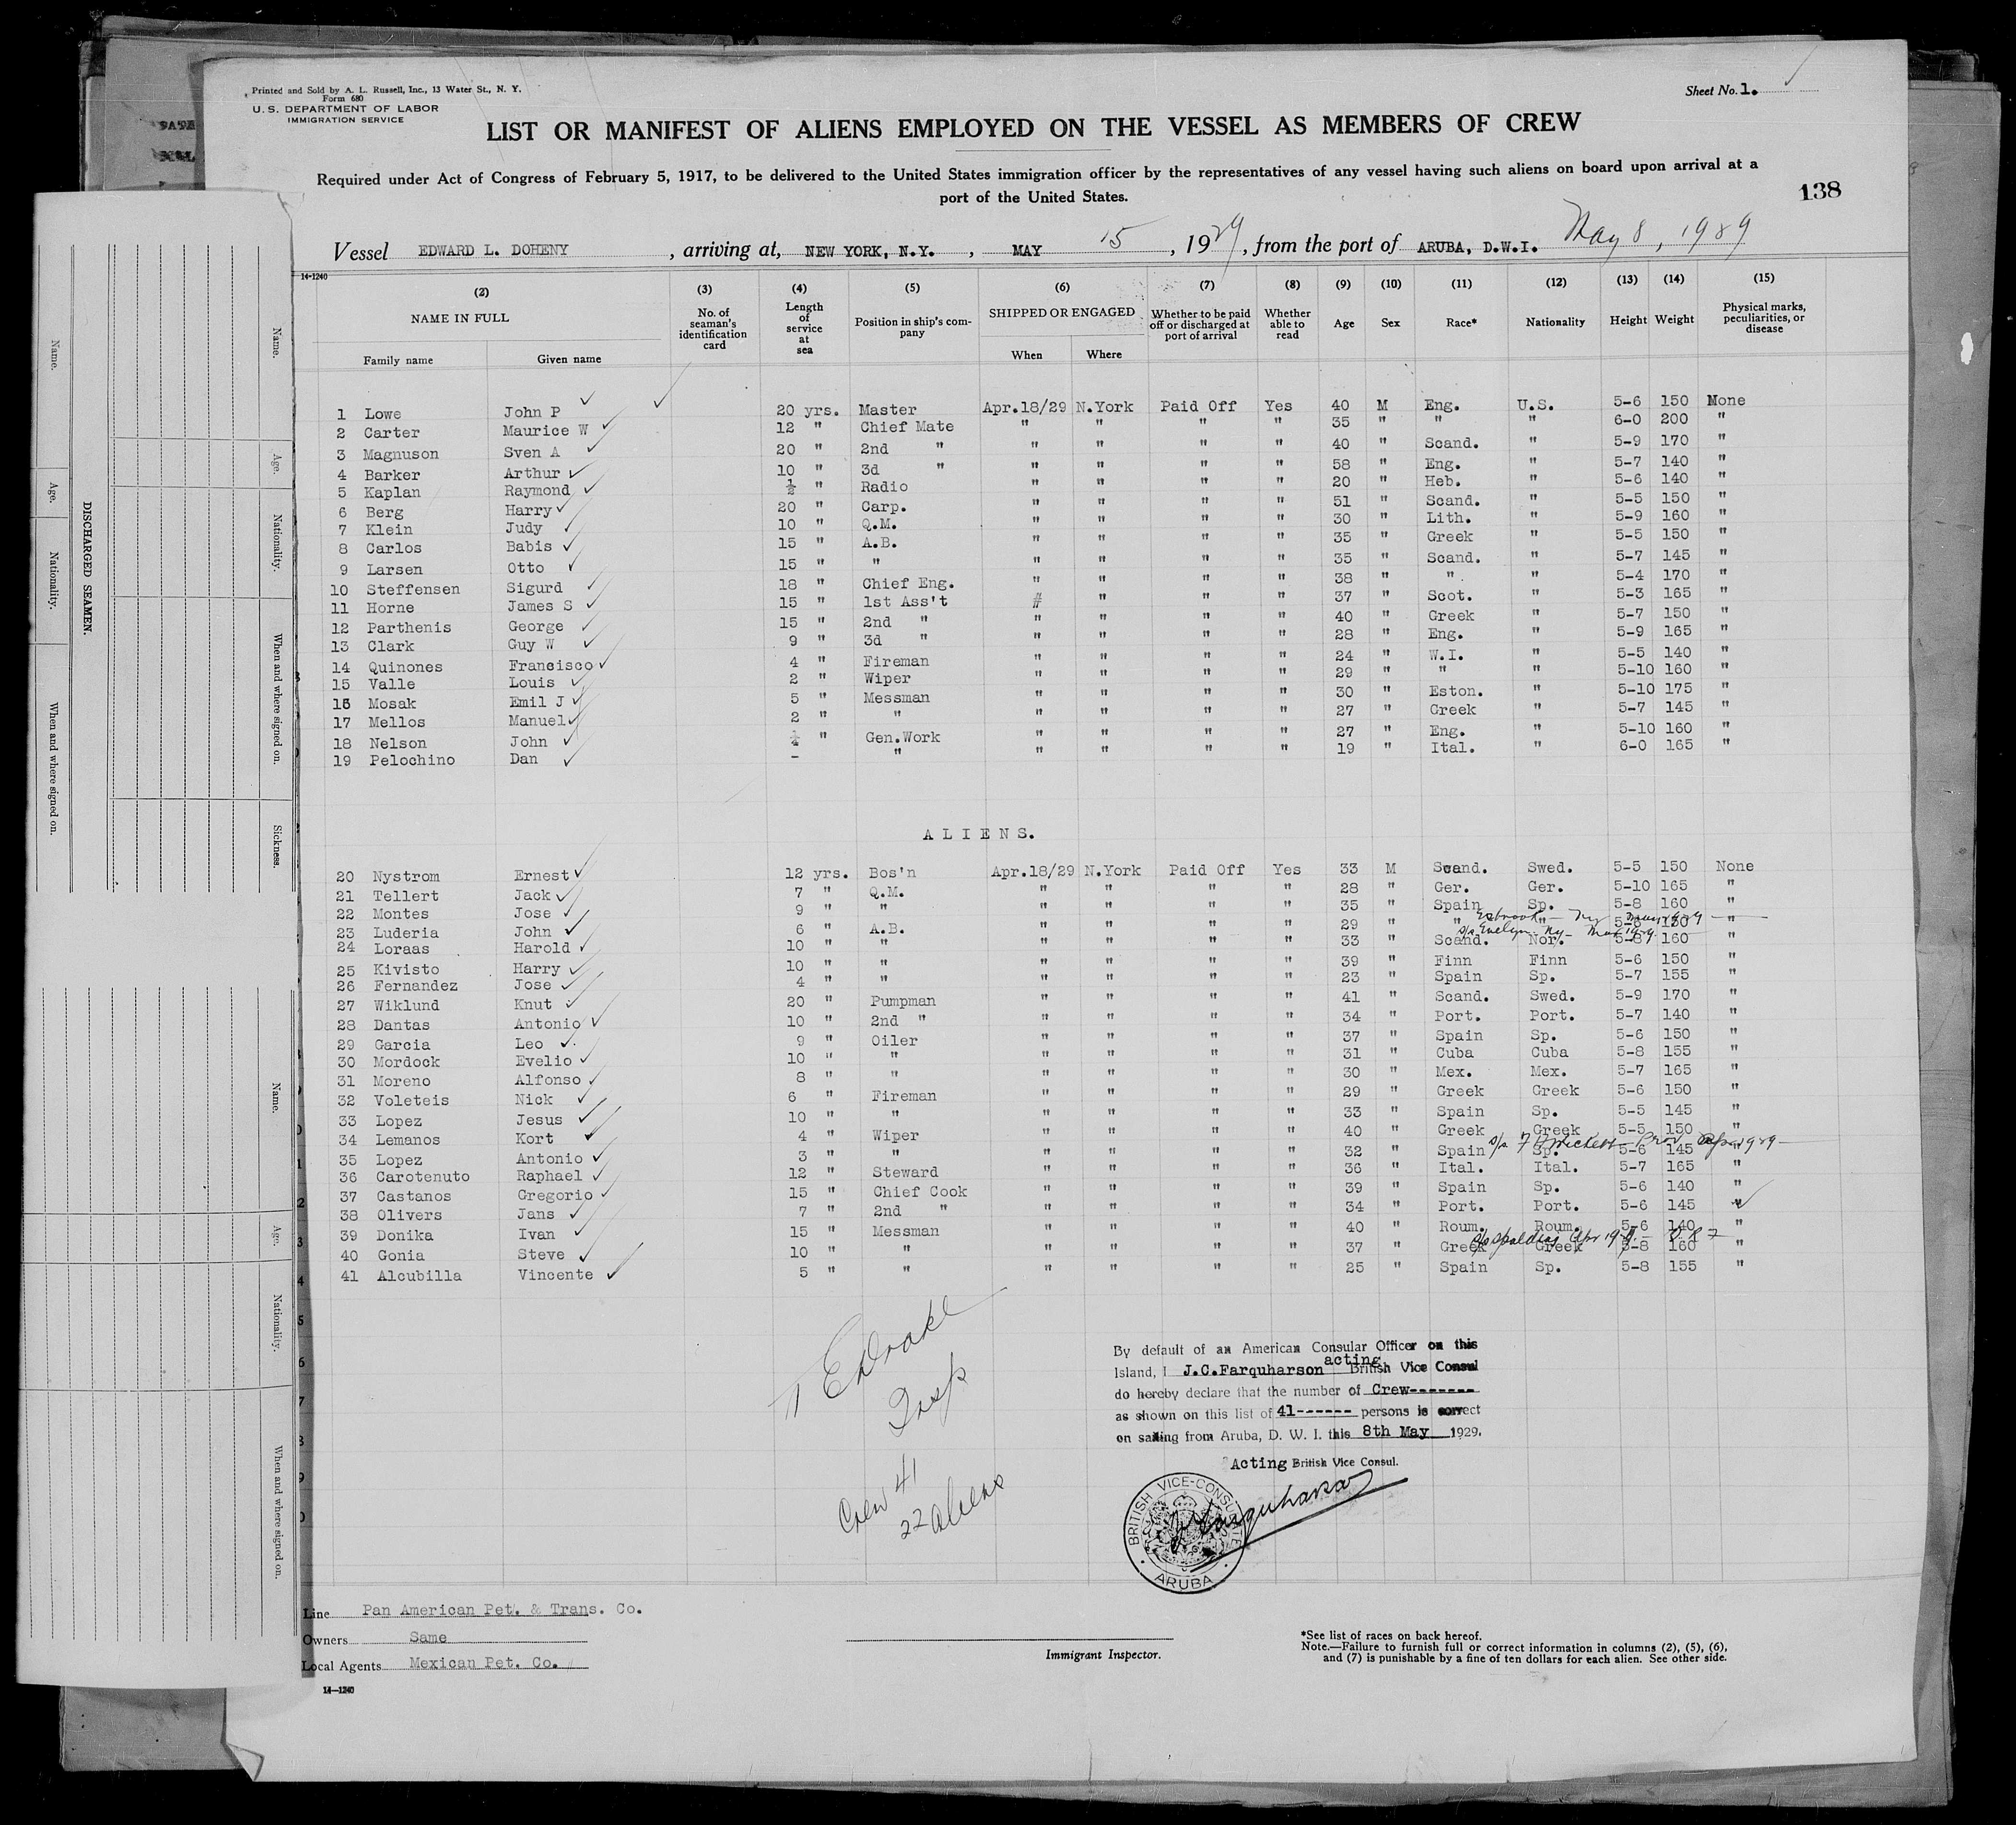 Printed and Sold by A. L. Russell, Inc., 13 Water St., N. Y.
Form 680
U. S. DEPARTMENT OF LABOR
IMMIGRATION SERVICE
Sheet No. 1.
LIST OR MANIFEST OF ALIENS EMPLOYED ON THE VESSEL AS MEMBERS OF CREW
Required under Act of Congress of February 5, 1917, to be delivered to the United States immigration officer by the representatives of any vessel having such aliens on board upon arrival at a
port of the United States.
138
Vessel EDWARD L. DOHENY, arriving at, NEW YORK, N.Y., MAY 15, 1929, from the port of ARUBA, D.W.I. May 8, 1929
14-1240
(2) (3) (4) (5) (6) (7) (8) (9) (10) (11) (12) (13) (14) (15)
NAME IN FULL
Family name Given name
No. of seaman's identification card
Length of service at sea
Position in ship's company
SHIPPED OR ENGAGED
When Where
Whether to be paid off or discharged at port of arrival
Whether able to read
Age Sex Race* Nationality Height Weight
Physical marks, peculiarities, or disease
1 Lowe John P 20 yrs. Master Apr.18/29 N.York Paid Off Yes 40 M Eng. U.S. 5-6 150 None
2 Carter Maurice W 12 " Chief Mate " " " " 35 " " " 6-0 200 "
3 Magnuson Sven A 20 " 2nd " " " " " 40 " Scand. " 5-9 170 "
4 Barker Arthur 10 " 3d " " " " " 58 " Eng. " 5-7 140 "
5 Kaplan Raymond ½ " Radio " " " " 20 " Heb. " 5-6 140 "
6 Berg Harry 20 " Carp. " " " " 51 " Scand. " 5-5 150 "
7 Klein Judy 10 " Q.M. " " " " 30 " Lith. " 5-9 160 "
8 Carlos Babis 15 " A.B. " " " " 35 " Greek " 5-5 150 "
9 Larsen Otto 15 " " " " " " 35 " Scand. " 5-7 145 "
10 Steffensen Sigurd 18 " Chief Eng. " " " " 38 " " " 5-4 170 "
11 Horne James S 15 " 1st Ass't # " " " 37 " Scot. " 5-3 165 "
12 Parthenis George 15 " 2nd " " " " " 40 " Greek " 5-7 150 "
13 Clark Guy W 9 " 3d " " " " " 28 " Eng. " 5-9 165 "
14 Quinones Francisco 4 " Fireman " " " " 24 " W.I. " 5-5 140 "
15 Valle Louis 2 " Wiper " " " " 29 " " " 5-10 160 "
16 Mosak Emil J 5 " Messman " " " " 30 " Eston. " 5-10 175 "
17 Mellos Manuel 2 " " " " " " 27 " Greek " 5-7 145 "
18 Nelson John " Gen.Work " " " " 27 " Eng. " 5-10 160 "
19 Pelochino Dan - " " " " " 19 " Ital. " 6-0 165 "
A L I E N S.
20 Nystrom Ernest 12 yrs. Bos'n Apr.18/29 N.York Paid Off Yes 33 M Scand. Swed. 5-5 150 None
21 Tellert Jack 7 " Q.M. " " " " 28 " Ger. Ger. 5-10 165 "
22 Montes Jose 9 " " " " " " 35 " Spain Sp. 5-8 160 "
23 Luderia John 6 " A.B. " " " " 29 " " " 5-6 150 "
24 Loraas Harold 10 " " " " " " 33 " Scand. Nor. 5-8 160 "
25 Kivisto Harry 10 " " " " " " 39 " Finn Finn 5-6 150 "
26 Fernandez Jose 4 " " " " " " 23 " Spain Sp. 5-7 155 "
27 Wiklund Knut 20 " Pumpman " " " " 41 " Scand. Swed. 5-9 170 "
28 Dantas Antonio 10 " 2nd " " " " " 34 " Port. Port. 5-7 140 "
29 Garcia Leo 9 " Oiler " " " " 37 " Spain Sp. 5-6 150 "
30 Mordock Evelio 10 " " " " " " 31 " Cuba Cuba 5-8 155 "
31 Moreno Alfonso 8 " " " " " " 30 " Mex. Mex. 5-7 165 "
32 Voleteis Nick 6 " Fireman " " " " 29 " Greek Greek 5-6 150 "
33 Lopez Jesus 10 " " " " " " 33 " Spain Sp. 5-5 145 "
34 Lemanos Kort 4 " Wiper " " " " 40 " Greek Greek 5-5 150 "
35 Lopez Antonio 3 " " " " " " 32 " Spain Sp. 5-6 145 "
36 Carotenuto Raphael 12 " Steward " " " " 36 " Ital. Ital. 5-7 165 "
37 Castanos Gregorio 15 " Chief Cook " " " " 39 " Spain Sp. 5-6 140 "
38 Olivers Jans 7 " 2nd " " " " " 34 " Port. Port. 5-6 145 "
39 Donika Ivan 15 " Messman " " " " 40 " Roum. Roum. 5-6 140 "
40 Gonia Steve 10 " " " " " " 37 " Greek Greek 5-8 160 "
41 Alcubilla Vincente 5 " " " " " " 25 " Spain Sp. 5-8 155 "
Drake
Insp
Crew 41
22 aliens
By default of an American Consular Officer on this
Island, I J.C.Farquharson acting British Vice Consul
do hereby declare that the number of Crew-------
as shown on this list of 41------ persons is correct
on sailing from Aruba, D. W. I. this 8th May 1929.
Acting British Vice Consul.
BRITISH VICE-CONSULATE
ARUBA
Farquharson
Line Pan American Pet. & Trans. Co.
Owners Same
Local Agents Mexican Pet. Co.
14-1240
Immigrant Inspector.
*See list of races on back hereof.
Note.—Failure to furnish full or correct information in columns (2), (5), (6),
and (7) is punishable by a fine of ten dollars for each alien. See other side.
DISCHARGED SEAMEN.
Name.
Age.
Nationality.
When and where signed on.
Name.
Age.
Nationality.
When and where signed on.
Sickness.
Name.
Age.
Nationality.
When and where signed on.